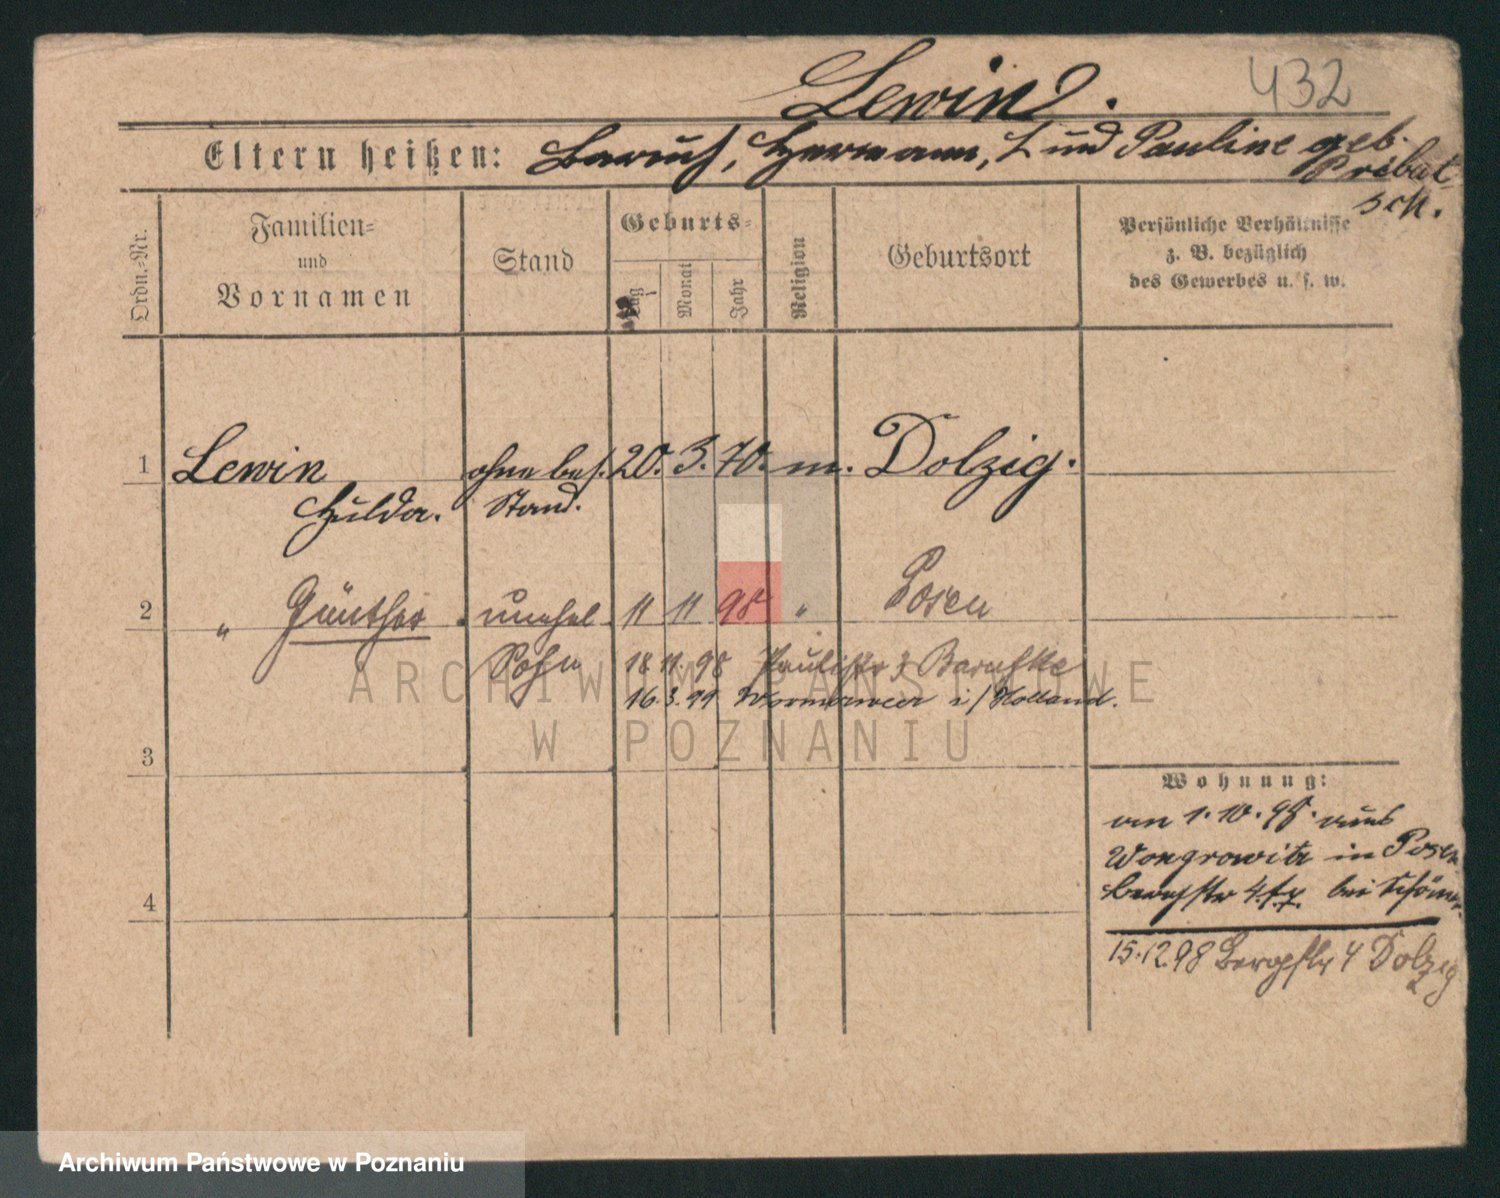 Lewin.
432
Eltern heißen: Baruch, Hermann, L und Pauline geb.
Pribat
sch.
Ordn.-Nr.
Familien-
und
Vornamen
Stand
Geburts-
Tag
Monat
Jahr
Religion
Geburtsort
Persönliche Verhältnisse
z. B. bezüglich
des Gewerbes u. s. w.
1 Lewin ohne bes. 20. 3. 70. m. Dolzig.
Hulda. Stand.
2 " Günther. unehel. 11 11 98 " Posen
Sohn 18 11. 98 Paulistr 3
16. 3. 99 Wormerveer i/Holland.
3
4
Wohnung:
am 1. 10. 98. aus
Wongrowitz in Posen
Bergstr 4. bei
15.12.98 Bergstr 4 Dolzig
ARCHIWUM PAŃSTWOWE
W POZNANIU
Archiwum Państwowe w Poznaniu